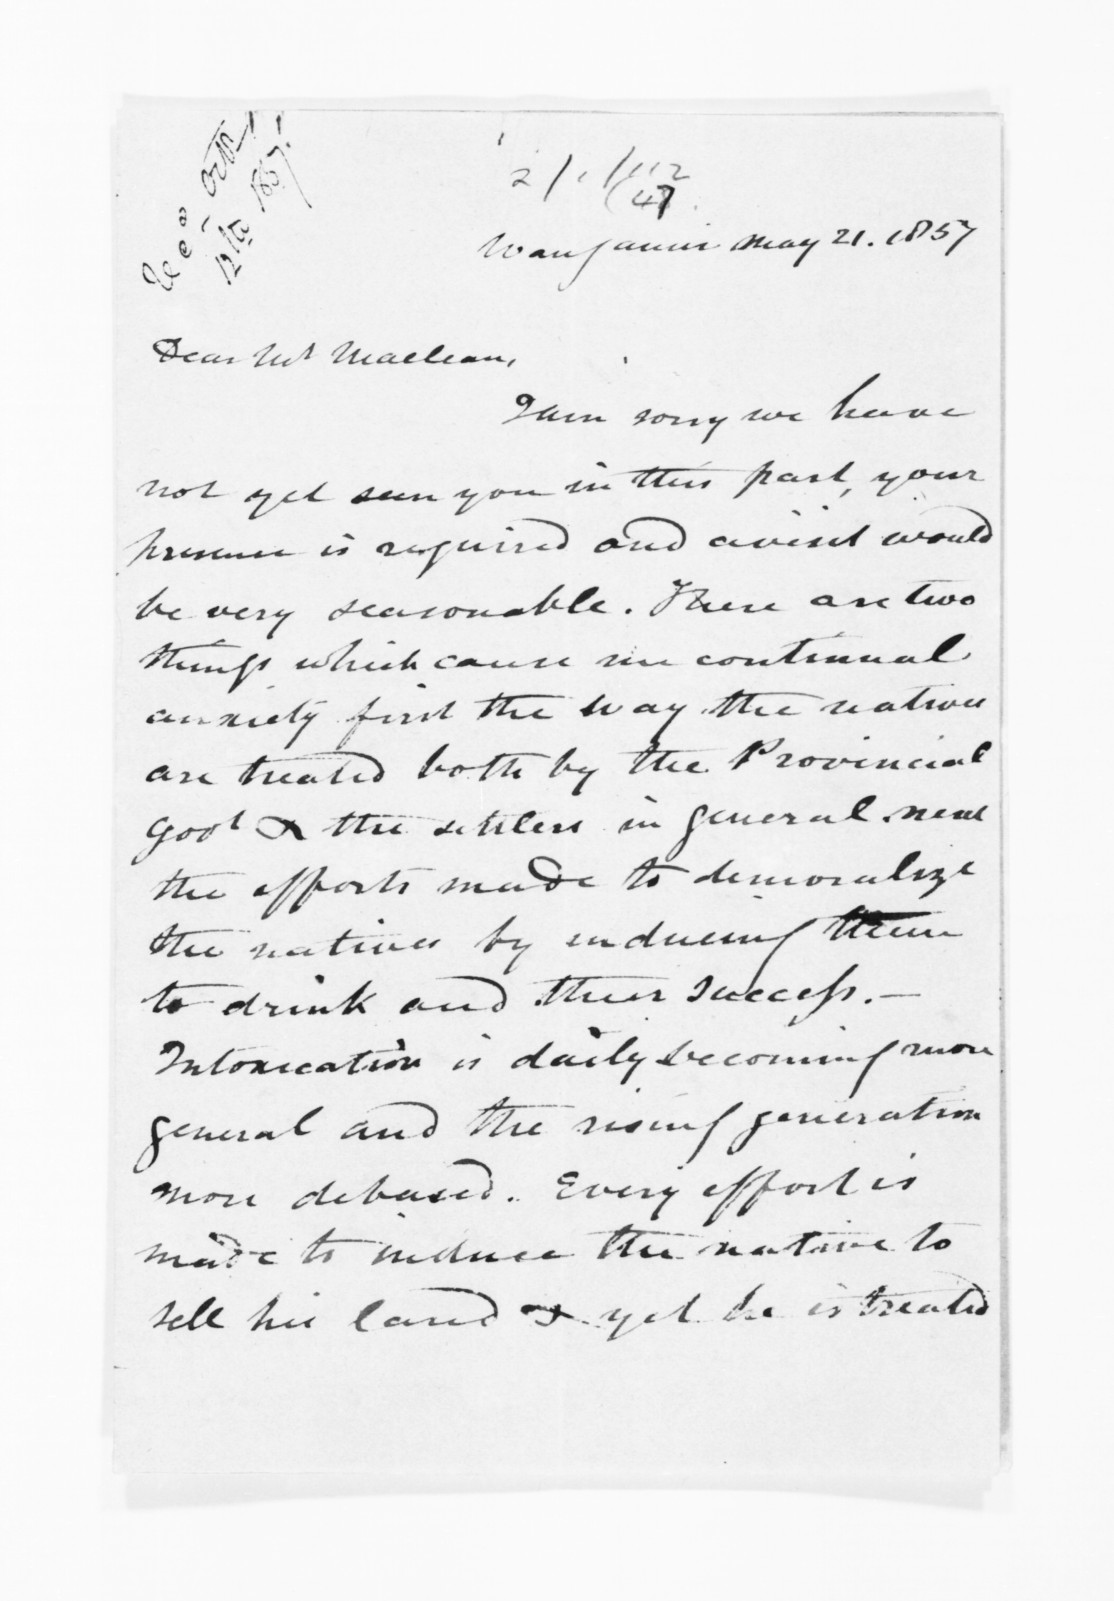 Octr
12th 1857.
2/1/112
(47).
Wanganui May 21. 1857
Dear Mr Maclean,
I am sorry we have
not yet seen you in this part, your
presence is required and a visit would
be very seasonable. There are two
things which cause me continual
anxiety first the way the natives
are treated both by the Provincial
Govt & the settlers in general. next
the efforts made to demoralize
the natives by inducing them
to drink and their success.—
Intoxication is daily becoming more
general and the rising generation
more debased. Every effort is
made to induce the native to
sell his land & yet he is treated